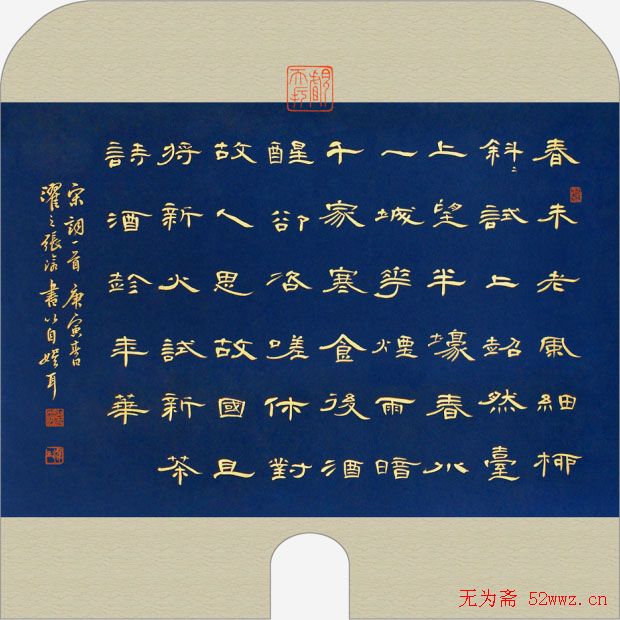 春未老風細柳
斜〻試上超然臺
上望半壕春水
一城花煙雨暗
千家寒食後酒
醒卻咨嗟休對
故人思故國且
將新火試新茶
詩酒趁年華
宋詞一首 庚寅春
濯之張 書以自娛耳
无为斋 52wwz.cn